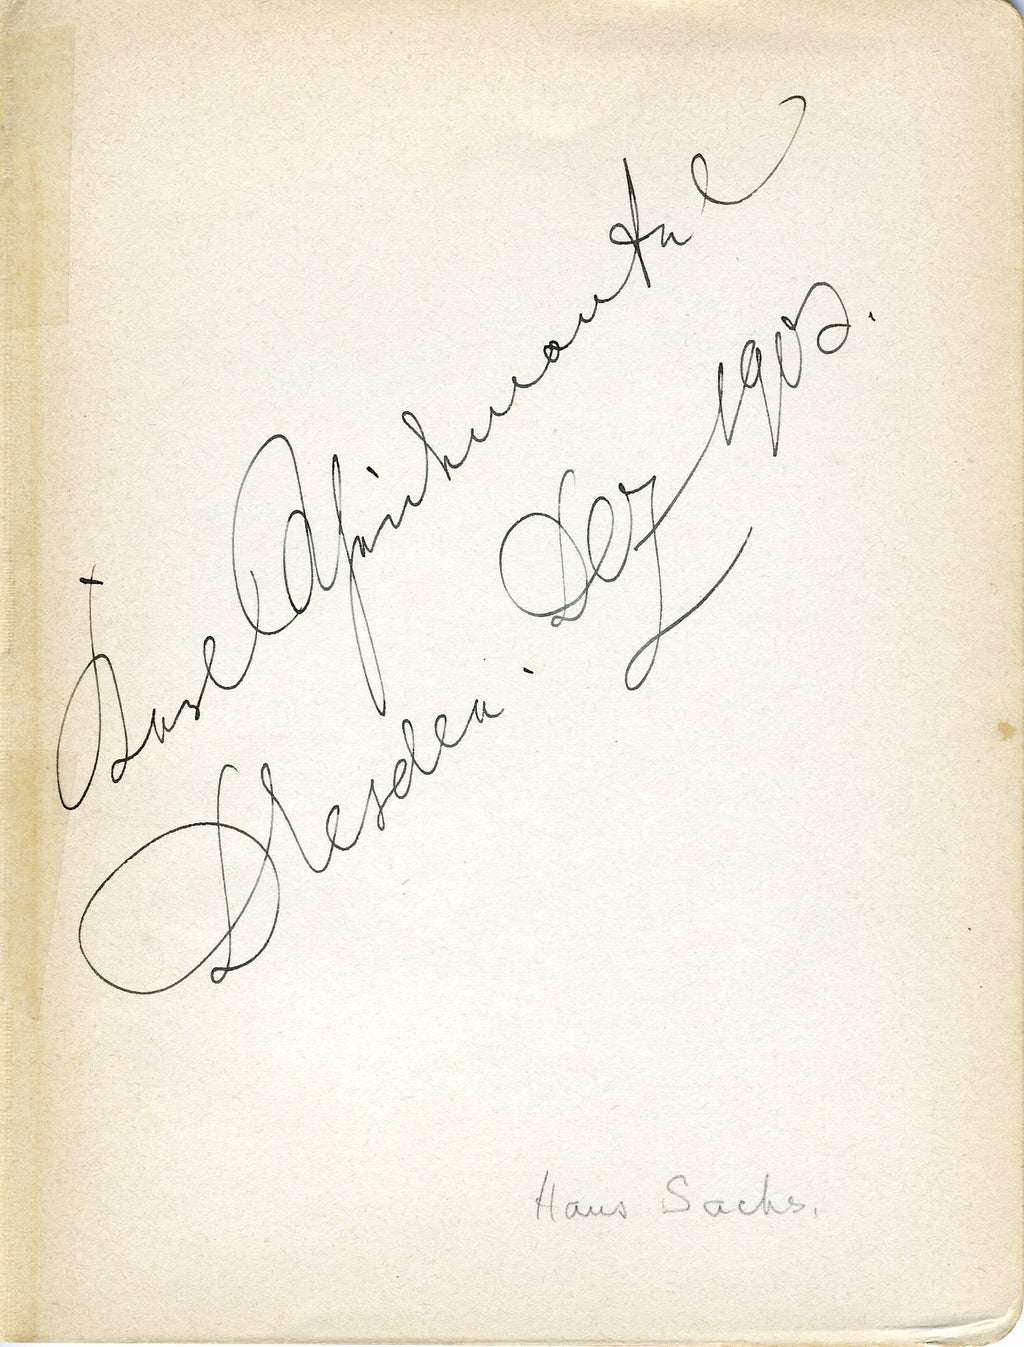 Karl Scheidemantel
Dresden. Dez 1902.
Hans Sachs.